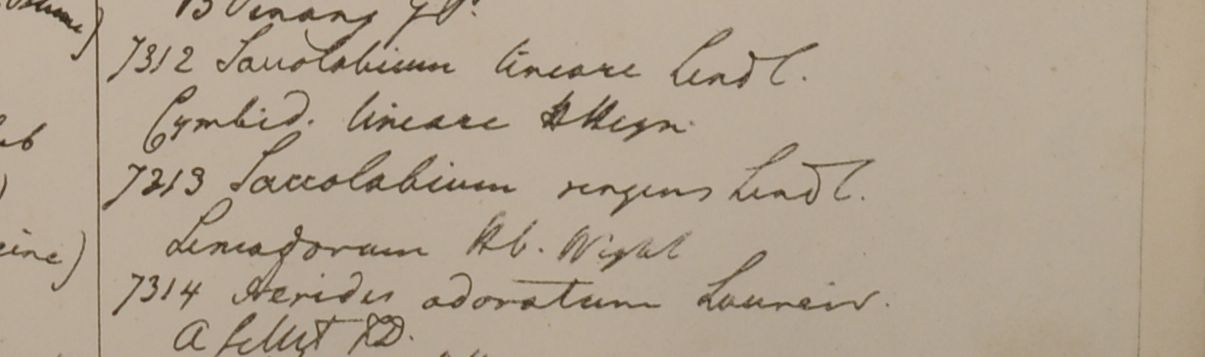 B Penang
7312 Saccolabium lineare Lindl.
Cymbid. lineare H Heyn.
7213 Saccolabium ringens Lindl.
Limodorum Hb. Wight
7314 Aerides odoratum Loureir.
A